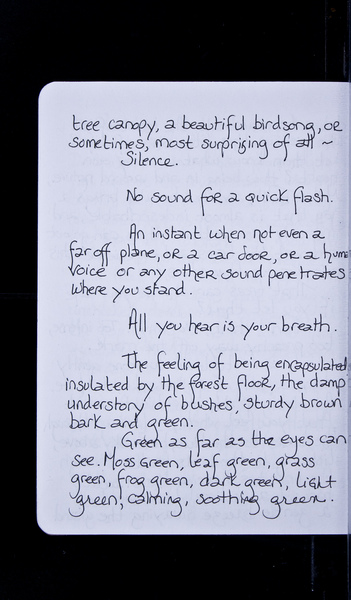 tree canopy, a beautiful birdsong, or
sometimes, most surprising of all ~
Silence.
No sound for a quick flash.
An instant when not even a
far off plane, or a car door, or a human
voice or any other sound penetrates
where you stand.
All you hear is your breath.
The feeling of being encapsulated
insulated by the forest floor, the damp
understory of bushes, sturdy brown
bark and green.
Green as far as the eyes can
see. Moss green, leaf green, grass
green, frog green, dark green, light
green, calming, soothing green.